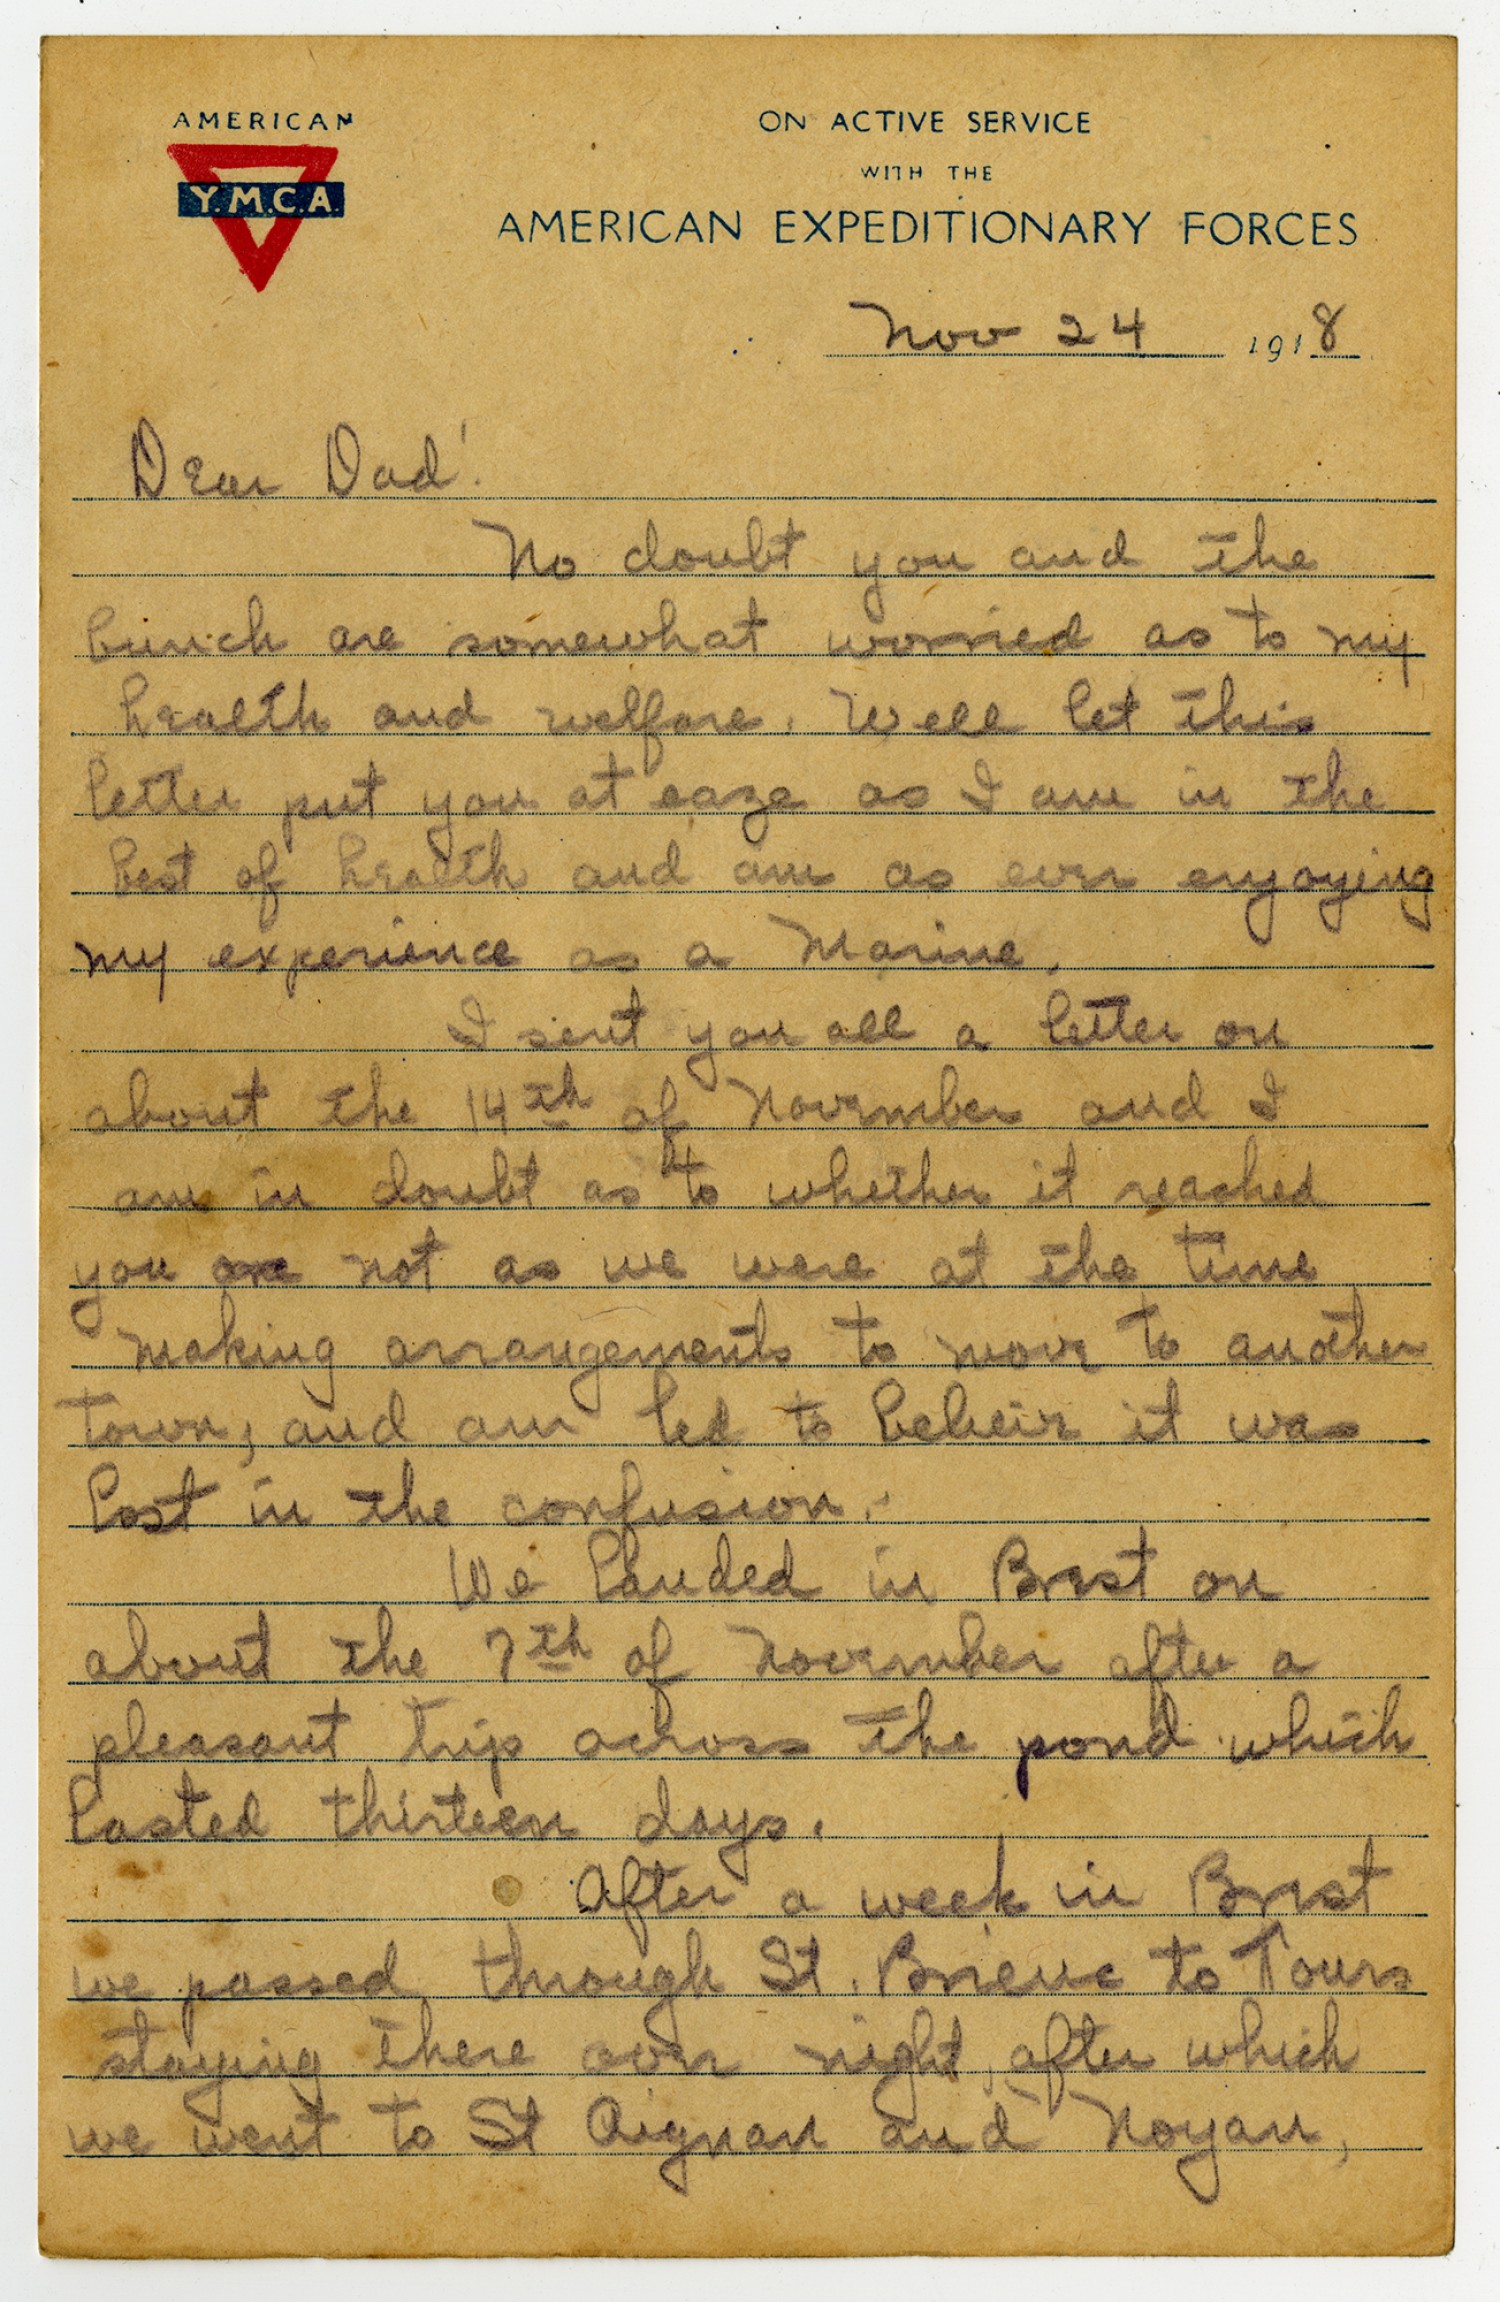 AMERICAN
Y.M.C.A.
ON ACTIVE SERVICE
WITH THE
AMERICAN EXPEDITIONARY FORCES
Nov 24 1918
Dear Dad!
No doubt you and the
bunch are somewhat worried as to my
health and welfare. Well let this
letter put you at eaze as I am in the
best of health and am as ever enjoying
my experience as a Marine.
I sent you all a letter on
about the 14th of November and I
am in doubt as to whether it reached
you ore not as we were at the time
making arrangements to move to another
town, and am led to beleive it was
lost in the confusion.
We landed in Brest on
about the 7th of November after a
pleasant trip across the pond which
lasted thirteen days.
After a week in Brest
we passed through St. Brieuc to Tours
staying there over night, after which
we went to St Aignan and Noyan,